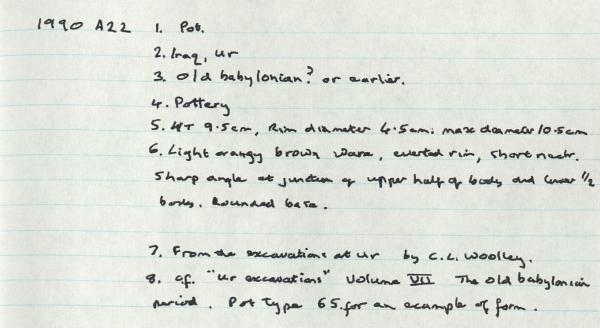 1990 A22 1. Pot.
2. Iraq, Ur
3. Old babylonian? or earlier.
4. Pottery
5. HT 9.5cm, Rim diameter 4.5cm. max diameter 10.5cm
6. Light orangy brown ware, everted rim, short neck.
Sharp angle at junction of upper half of body and lower 1/2
body. Rounded base.
7. From the excavations at Ur by C.L. Woolley.
8. cf. "Ur excavations" Volume VII The old babylonian
period. Pot Type 65. for an example of form.